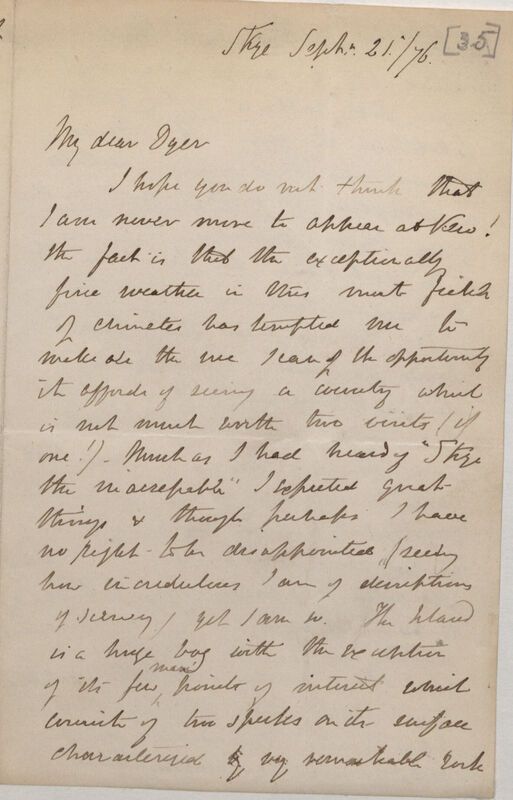 Skye Septr. 21./76. [35]
My dear Dyer
I hope you do not think that
I am never more to appear at Kew!
the fact is that the exceptionally
fine weather in this most fickle
of climates has tempted me to
make all the use I can of the opportunity
it affords of seeing a country which
is not much worth two visits (if
one!) - Much as I had heard of "Skye
the inaccessible" I expected great
things & though perhaps I have
no right to be disappointed (seeing
how incredulous I am of descriptions
of scenery) yet I am so. The Island
is a huge bog with the exception
of its few main points of interest which
consist of two specks on its surface
characterized by very remarkable rock